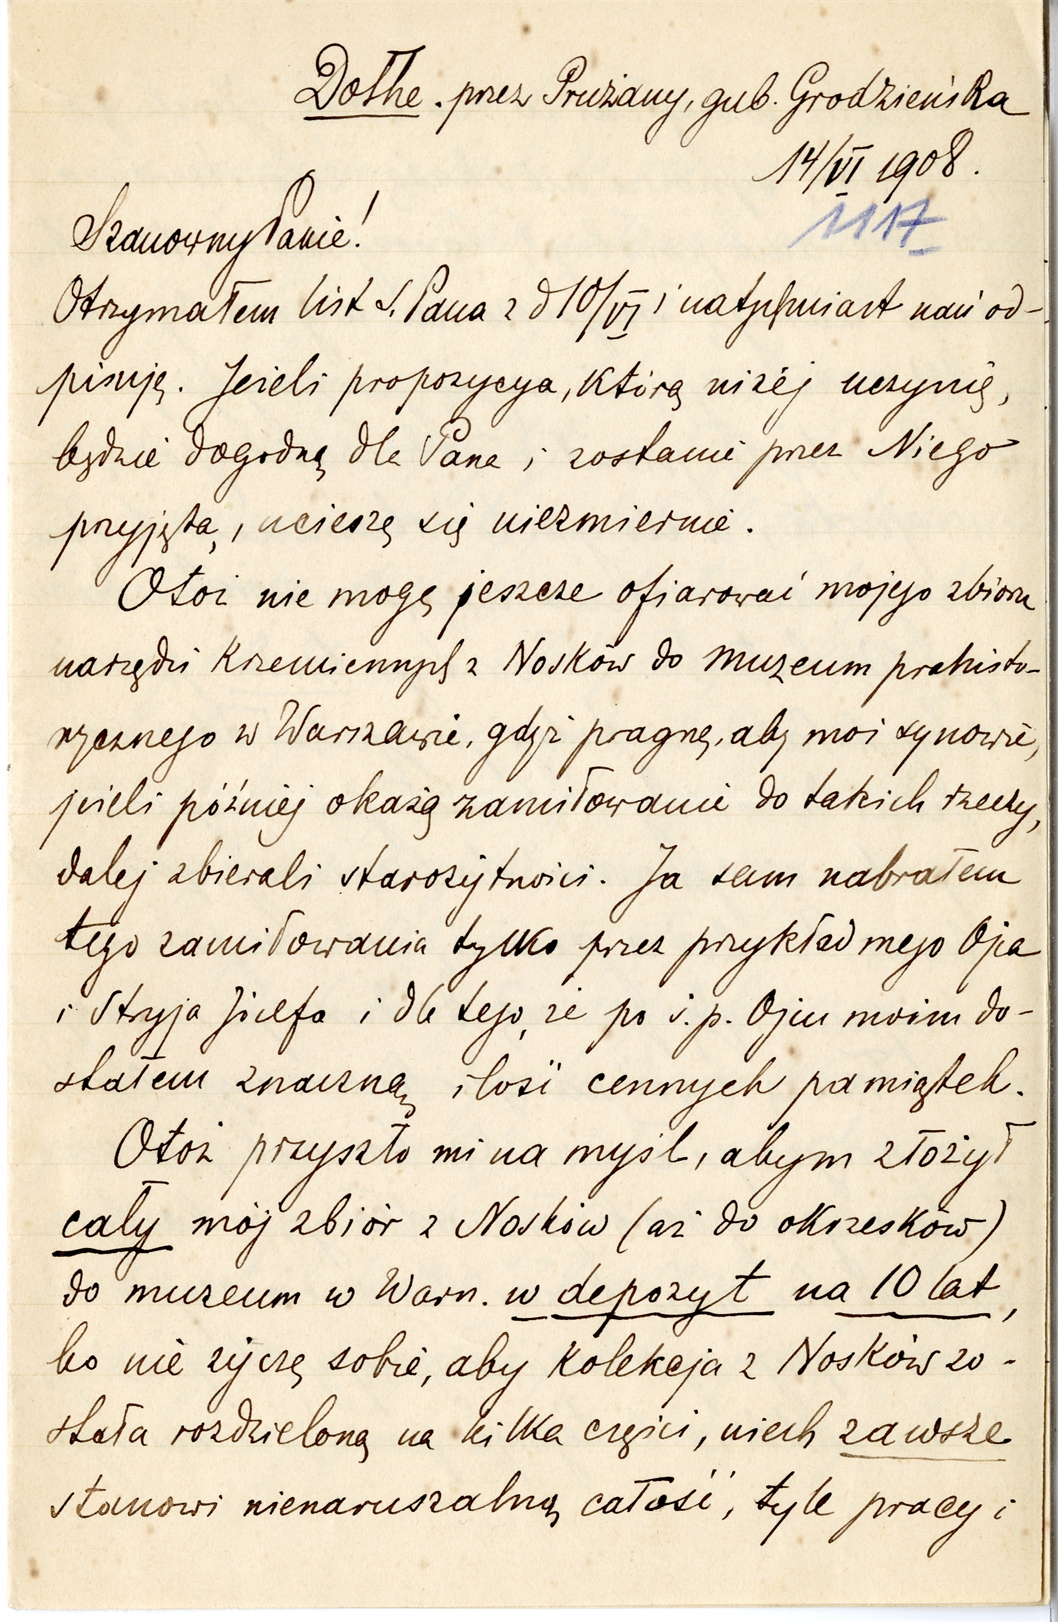 Dołhe. przez Prużany, gub. Grodzieńska
14/VI 1908.
1117
Szanowny Panie!
Otrzymałem list S. Pana z d 10/VI i natychmiast nań od-
pisuję. Jeżeli propozycya, którą niżej uczynię,
będzie dogodną dla Pana i zostanie przez Niego
przyjętą, ucieszę się niezmiernie.
Otoż nie mogę jeszcze ofiarować mojego zbioru
narzędzi krzemiennych z Nosków do muzeum prehisto-
rycznego w Warszawie, gdyż pragnę, aby moi synowie,
jeżeli później okażą zamiłowanie do takich rzeczy,
dalej zbierali starożytności. Ja sam nabrałem
tego zamiłowania tylko przez przykład mego Ojca
i Stryja Józefa i dla tego, że po ś. p. Ojcu moim do-
stałem znaczną ilość cennych pamiątek.
Otoż przyszło mi na myśl, abym złożył
cały mój zbiór z Nosków (aż do okrzesków)
do muzeum w Warsz. w depozyt na 10 lat,
bo nie życzę sobie, aby kolekcja z Nosków zo-
stała rozdzieloną na kilka części, niech zawsze
stanowi nienaruszalną całość, tyle pracy i